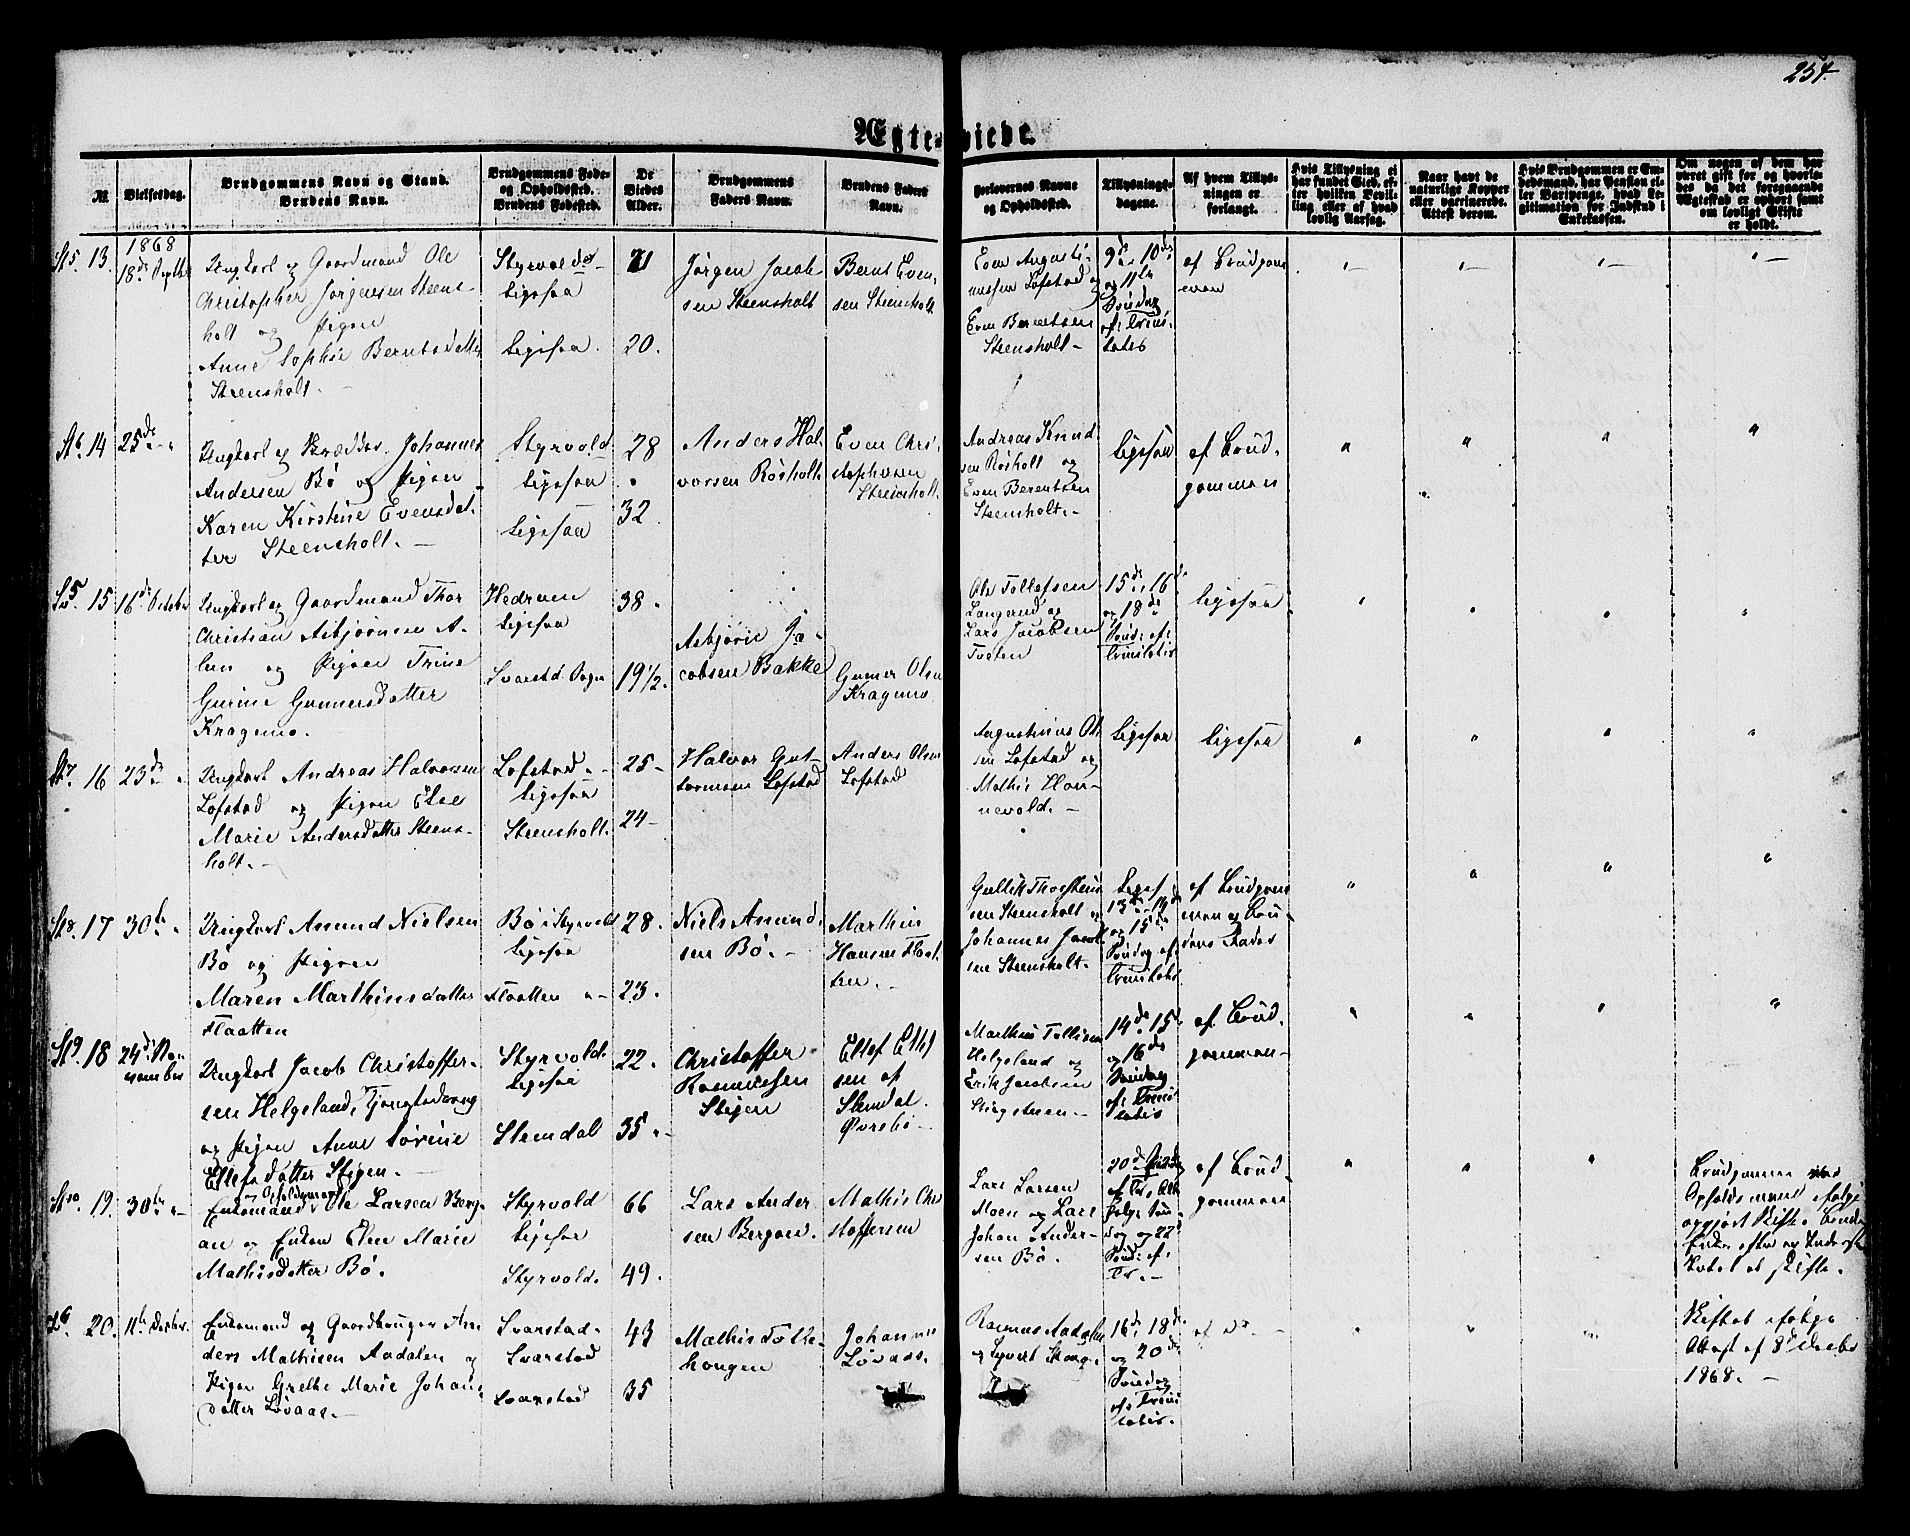 254.
Ægteviede.
№
Vielsesdag.
Brudgommens Navn og Stand.
Brudens Navn.
Brudgommens Føde-
og Opholdssted.
Brudens Fødested.
De
Viedes
Alder.
Brudgommens
Faders Navn.
Brudens Faders
Navn.
Forlovernes Navne
og Opholdssted.
Tillysnings-
dagene.
Af hvem Tillys-
ningen er
forlangt.
Hvis Tillysning ei
har fundet Sted, ef-
ter hvilken Bevil-
ling eller af hvad
lovlig Aarsag.
Naar havt de
naturlige Kopper
eller vaccinerede.
Attest derom.
Hvis Brudgommen er Em-
bedsmand, har Pension el-
ler Vartpenge, hvad Le-
gitimation for Indskud i
Enkekassen.
Om nogen af dem har
været gift før og hvorle-
des da det foregaaende
Ægteskab er ophørt samt
om lovligt Skifte
er holdt.
St5. 13.
1868
18de Septbr
Ungkarl og Gaardmand Ole
Christopher Jørgensen Steens-
holt og Pigen
Anne Sophie Berntsdatter
Steensholt. —
Styrvold
ligesaa
ligesaa.
21
20.
Jørgen Jacob-
sen Steensholt
Bernt Even-
sen Steensholt
Even Augusti-
nussen Lofstad og
Even Berentsen
Steensholt —
9de 10de
og 11te
Søndag
ef: Trini-
tatis
af Brudgom
men
St6. 14
25de "
Ungkarl og Johannes
Andersen Bø og Pigen
Karen Kirstine Evensdat-
ter Steensholt. —
Styrvold
ligesaa
ligesaa
28
32
Anders Hal-
vorsen Røsholt
Even Chri-
stophersen
Steensholt
Andreas Knud-
sen Røsholt og
Even Berentsen
Steensholt. —
ligesaa
af Brud-
gommen
Sv5. 15
16de October
Ungkarl og Gaardmand Thor
Christian Asbjørnsen A-
len og Pigen Trine
Gurine Gunnersdatter
Kragemo.
Hedrum
ligesaa
Svarstd Sogn
38.
19 1/2.
Asbjørn Ja-
cobsen Bakke
Gunner Olsen
Kragemo
Ole Tollefsen
Langerud og
Lars Jacobsen
Tveten
15de, 16de
og 18de
Sønd: ef:
Trinitatis
ligesaa
St7. 16
23de "
Ungkarl Andreas Halvorsen
Lofstad og Pigen Else
Marie Andersdatter Steens-
holt. —
Lofstad
ligesaa
Steensholt.
25 —
24 —
Halvor Gut-
tormsen Lofstad
Anders Olsen
Lofstad
Augustinus Ol-
sen Lofstad og
Mathis Hon-
nevold. —
ligesaa
ligesaa
St8. 17
30te "
Ungkarl Amund Nielsen
Bø og Pigen
Maren Marthinsdatter
Flaatten
Bø i Styrvold
ligesaa
Flaatten
28.
23.
Niels Amund-
sen Bø. —
Marthin
Hansen Flaat-
ten. —
Gullik Thorstein
sen Steensholt og
Johannes Jacob-
sen Steensholt.
13de, 14de
og 15de
Søndag ef
Trinitatis
af Brudgom
men og Bru-
dens Fader
St9. 18
24de No-
vember
Ungkarl Jacob Christoffer-
sen Helgeland,
og Pigen Anne Sørine
Ellefsdatter Stigen. —
Styrvold.
ligesaa
Stemdal
22.
35 "
Christoffer
Rasmussen
Stigen
Ellef Ellef
sen af
Stemdal
Øvrebø —
Marthin Tollisen
Helgeland og
Erik Jacobsen
14de, 15de
og 16de
Søndag
ef: Trini
tatis
af Brud-
gommen —
St10. 19.
30te "
og Opholdsmand
Enkemand Ole Larsen Berg-
an og Enken Elen Marie
Mathisdatter Bø.
Styrvold
ligesaa
Styrvold.
66
49.
Lars Ander
sen Bergan.
Mathis Chri
stoffersen
Lars Larsen
Moen og Lars
Johan Ander-
sen Bø.
20de Søndag
ef Tr:
Sønd: ef:
Tr. —
af Brud-
gommen
Brudgommen
Opholdsmand ifølge
opgjort Skifte. Bruden
Enke efter
at skifte.
20.
11te Decbr.
Enkemand og Gaardbruger An-
ders Mathisen Aadalen og
Pigen Grethe Marie Johan-
datter Løvaas. —
Svarstad.
Svarstad
Svarstad
43
35
Mathis
hougen
Johannes
Løvaas.
Rasmus Aadalen
og Syvert Skoug
16de, 18de
og 20de
Søndag
ef: Trini
tatis.
af Do —
Skiftet ifølge
Attest af 8de Decbr
1868. —